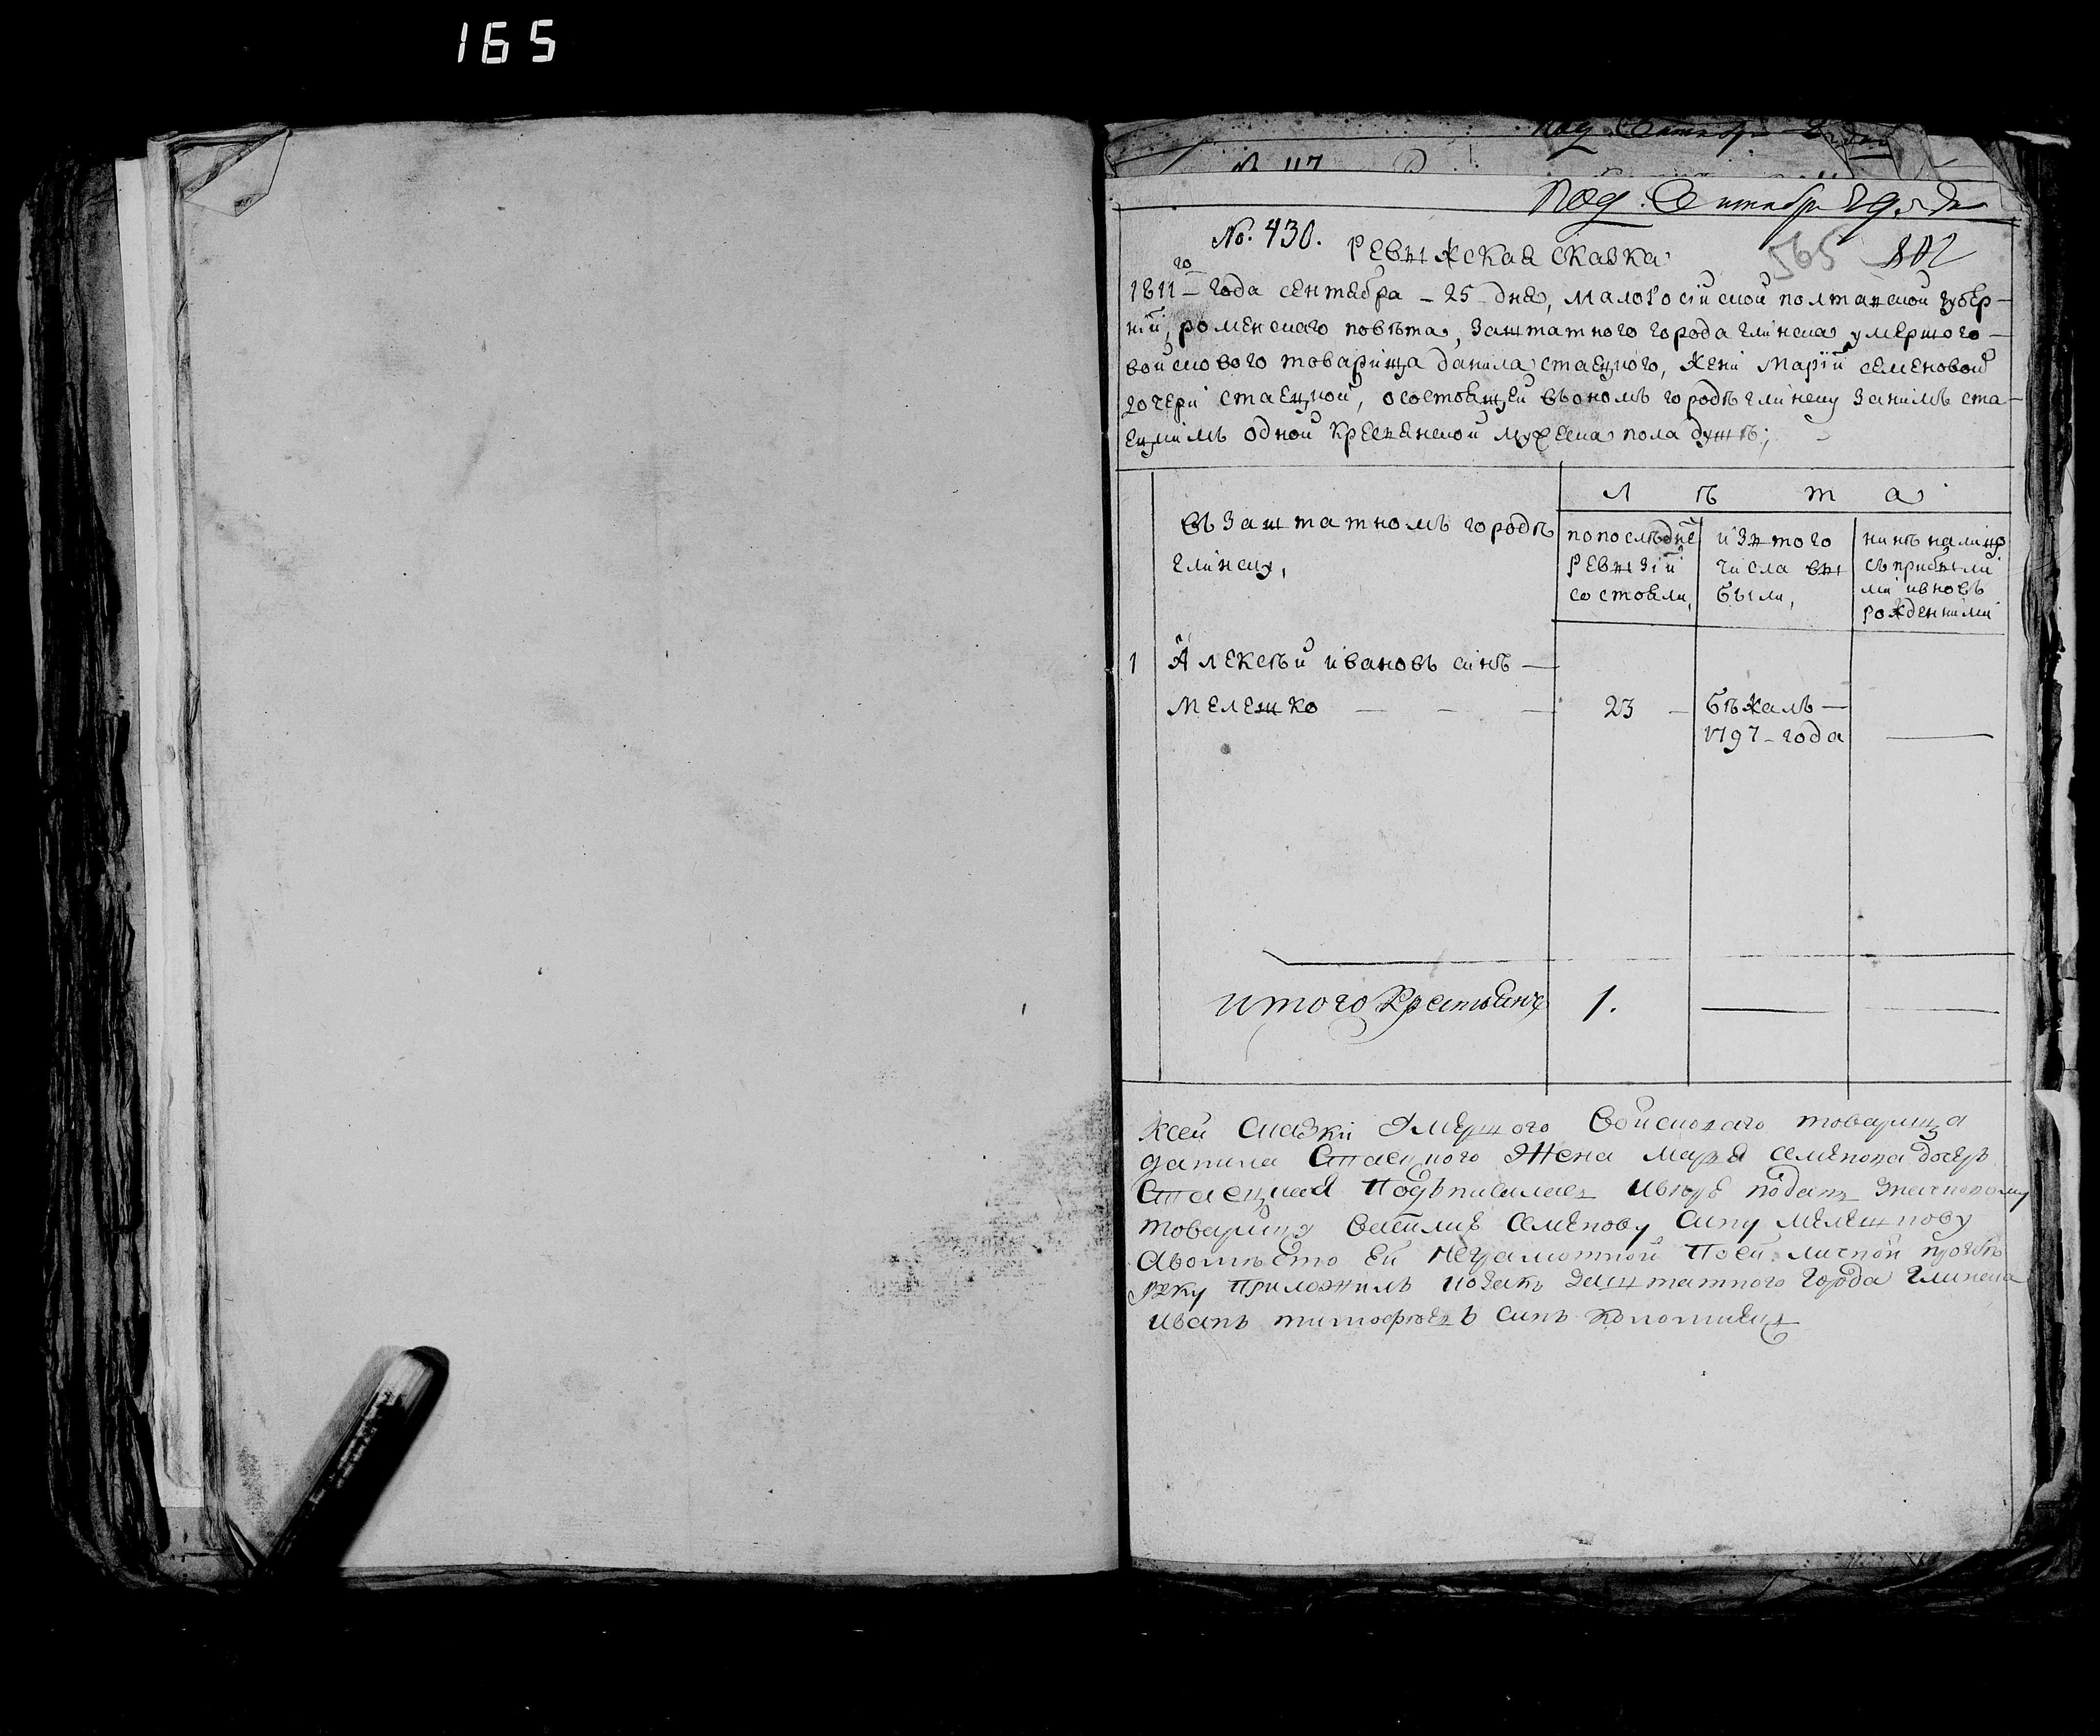 165
под. Сентябр 29. дн
No. 430.
РЕВИЖСКАЯ СКАЗКА
565 802
1811 го года сентебра 25 дня, малоросійской полтавской губер-
ніи, роменскаго повѣта, заштатного города глинска умершого
войскового товарища данила стаецкого, жени маріи семеновой
дочери стаецкой, осостоящей въономъ городѣ глинску занимъ ста-
ецкимъ одной крестенской мужеска пола душѣ;
Л ѣ т а
въ заштатномъ городѣ
глинску,
попослѣдней
ревизіи
состояли,
изтого
числа ви
были,
нинѣ налицо
съприбили
ми ивновъ
рожденними
1 Алексѣй ивановъ синъ
мелешко 23 бѣжалъ
1797 года
итого крестьянъ 1.
ксей сказки умершого войскового товарища
данила Стаецкого жена марья семенова дочерь
Стаецкая подъписалась подать значковому
товарищу василию семенову сину мелешкову
авомѣсто ей неграмотной поей личной прозбѣ
руку приложилъ козакъ заштатного города глинска
иванъ тимофѣевъ синъ